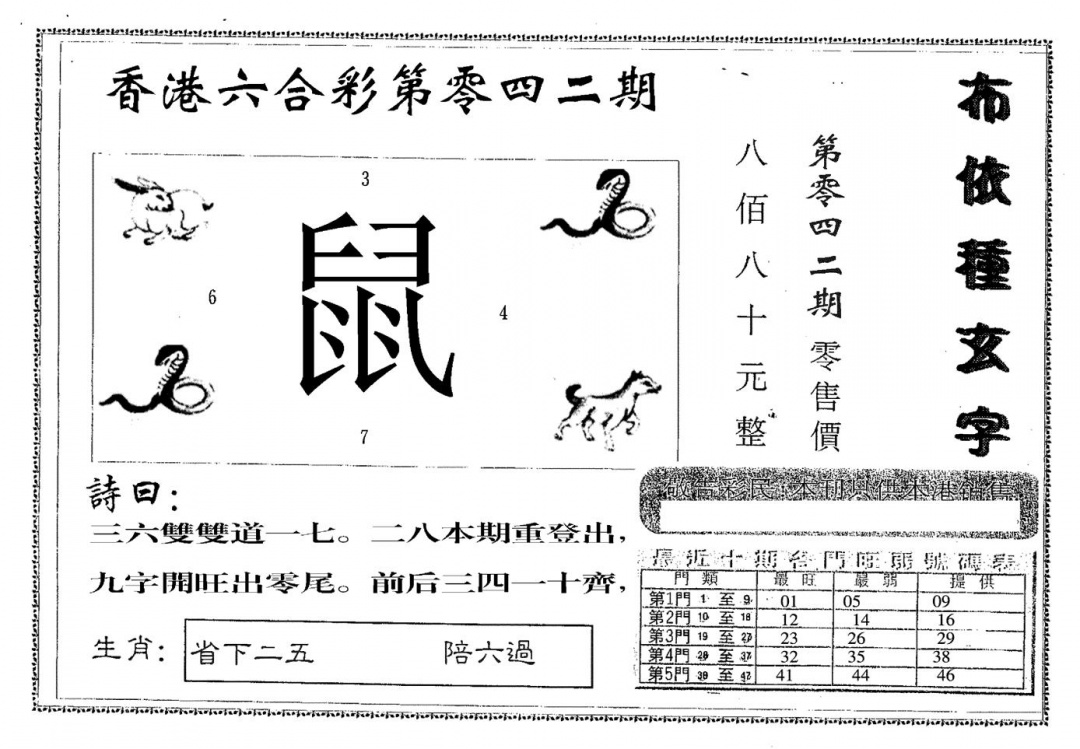 香港六合彩第零四二期
布依種玄字
第零四二期零售價
八佰八十元整
3
鼠
6
4
7
詩曰:
三六雙雙道一七。二八本期重登出,
九字開旺出零尾。前后三四一十齊,
生肖: 省下二五 陪六過
敬告彩民:本刊只供本港銷售
最近十期各門旺弱號碼表
門類 最旺 最弱 提供
第1門 1 至 9 01 05 09
第2門 10 至 18 12 14 16
第3門 19 至 27 23 26 29
第4門 28 至 37 32 35 38
第5門 38 至 47 41 44 46